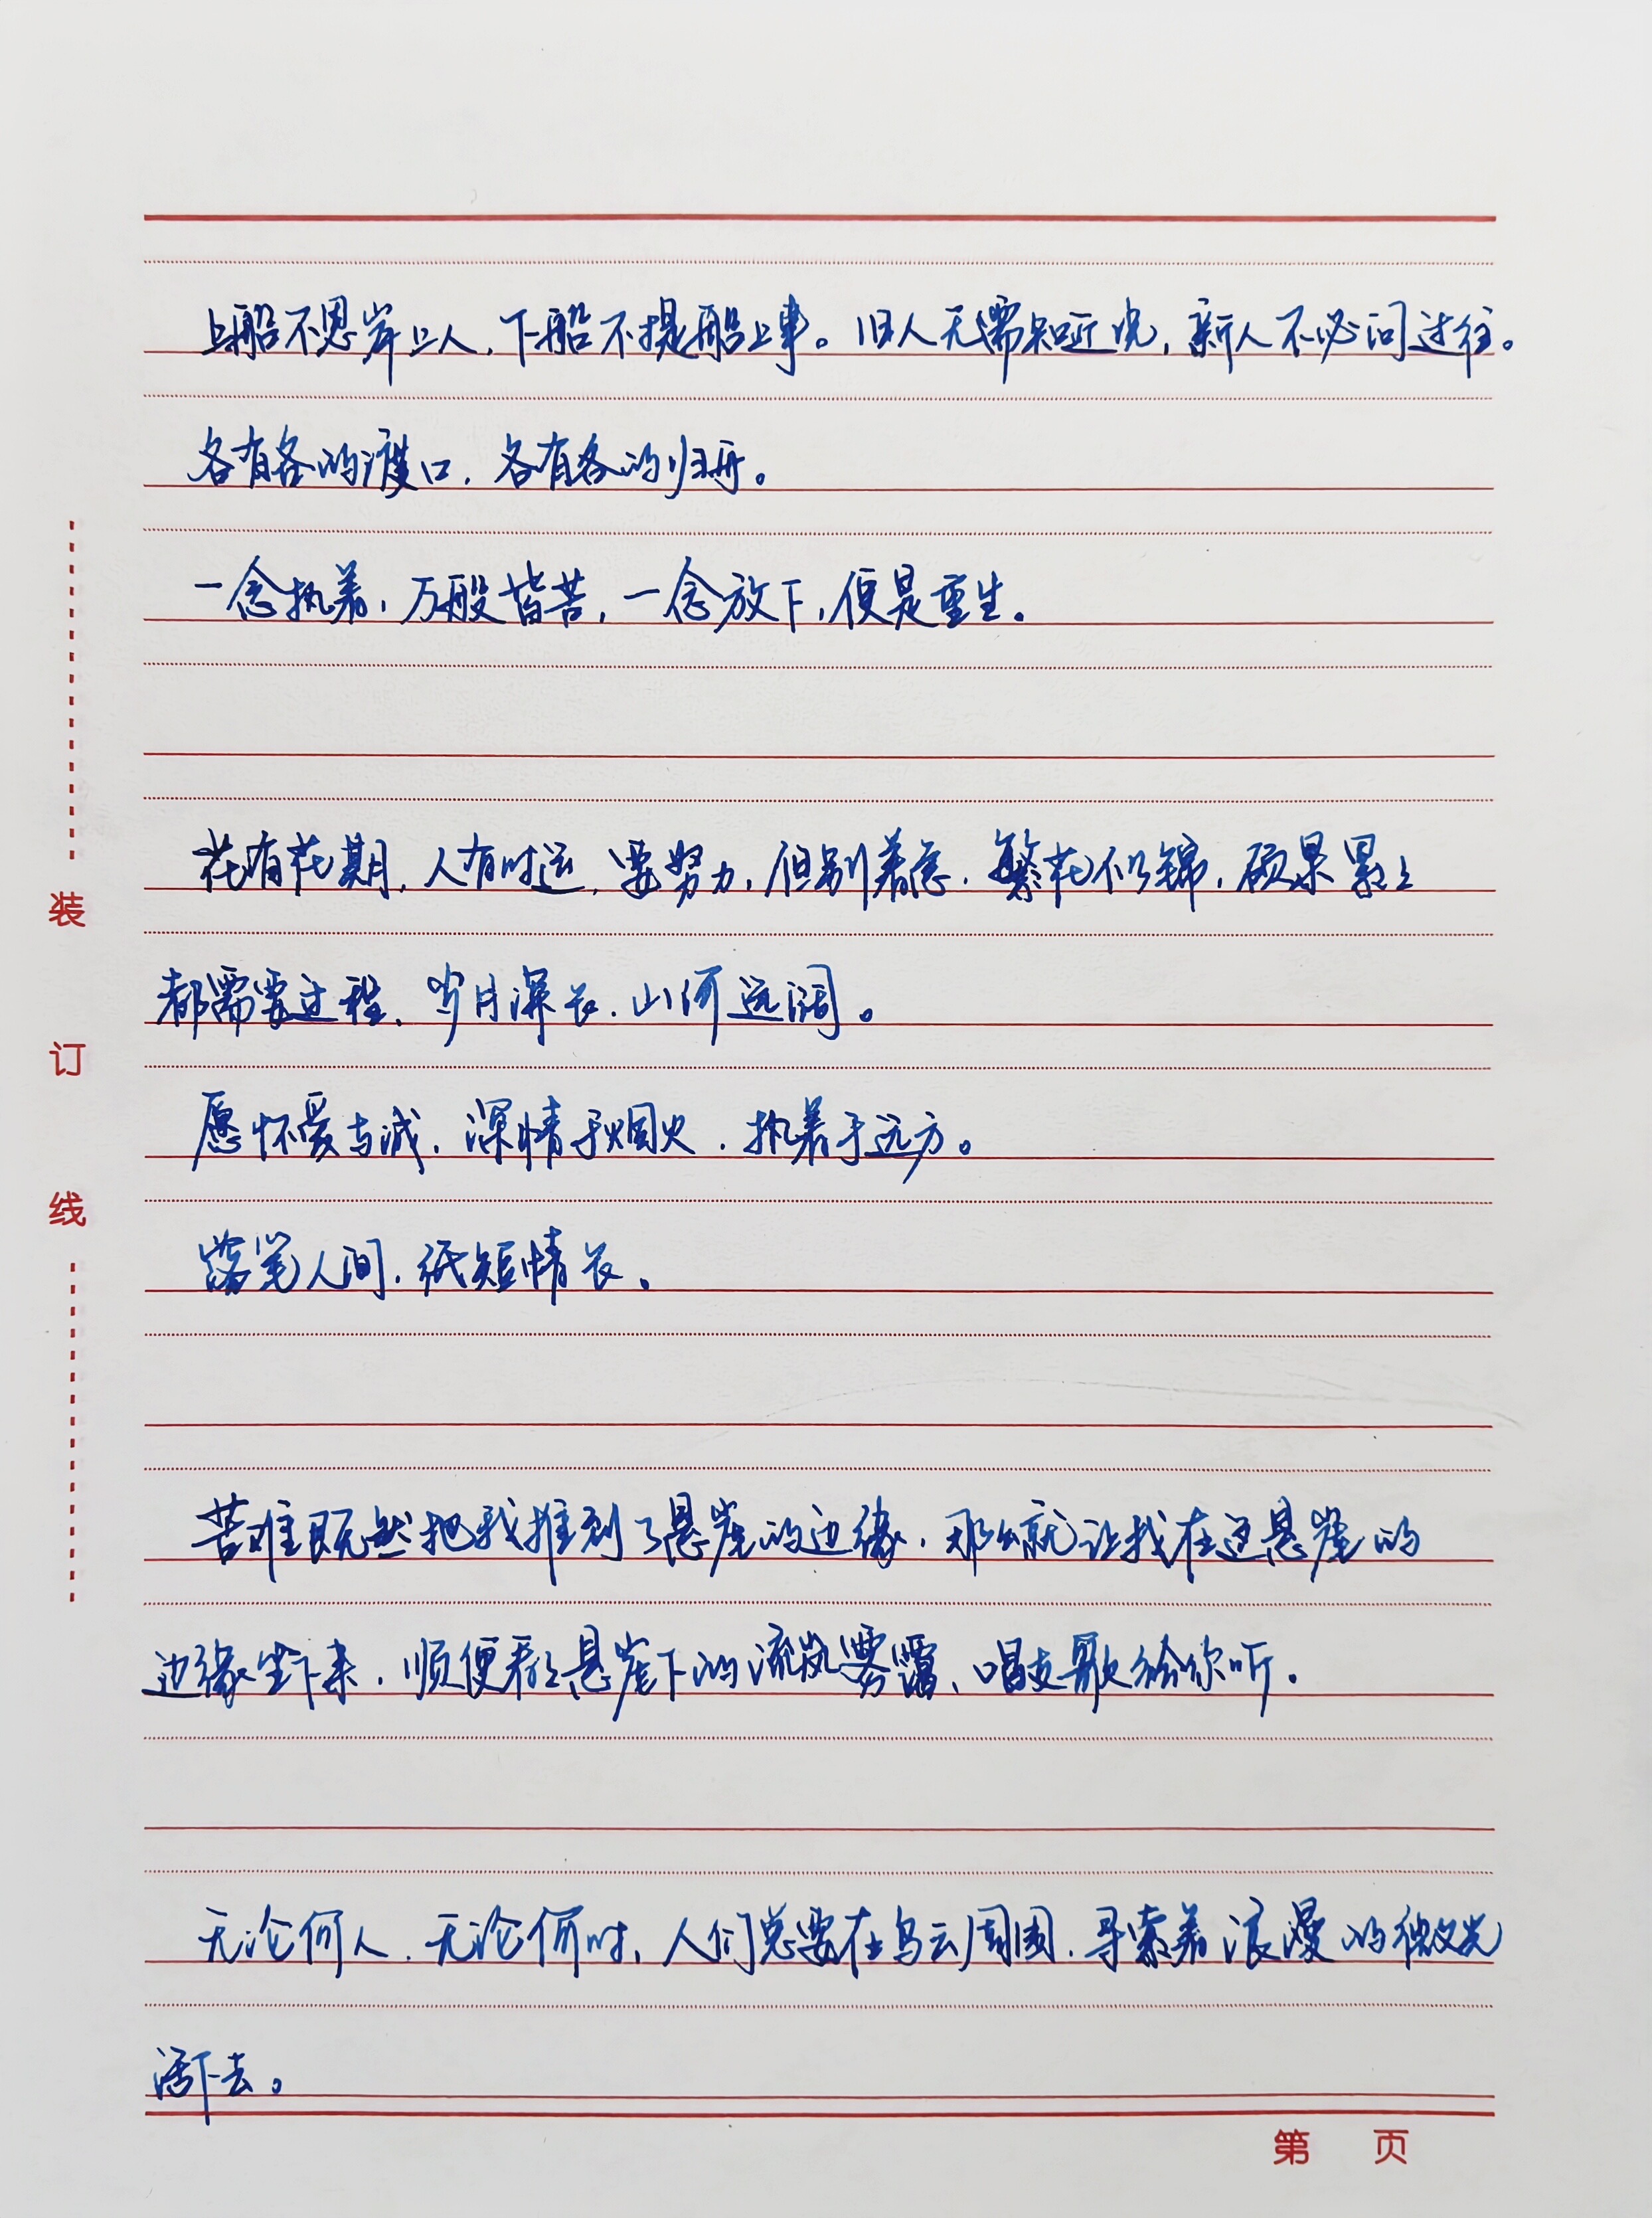 上船不思岸上人，下船不提船上事。旧人无需知近况，新人不必问过往。
各有各的渡口，各有各的归舟。
一念执着，万般皆苦，一念放下，便是重生。
花有花期，人有时运，要努力，但别着急，繁花似锦，硕果累々
都需要过程，岁月深长，山河远阔。
愿怀爱与诚，深情于烟火，执着于远方。
落笔人间，纸短情长。
苦难既然把我推到了悬崖的边缘，那么就让我在这悬崖的
边缘坐下来，顺便看々悬崖下的流岚雾霭、唱支歌给你听。
无论何人，无论何时，人们总要在乌云周围，寻索着浪漫的微光
活下去。
装
订
线
第 页